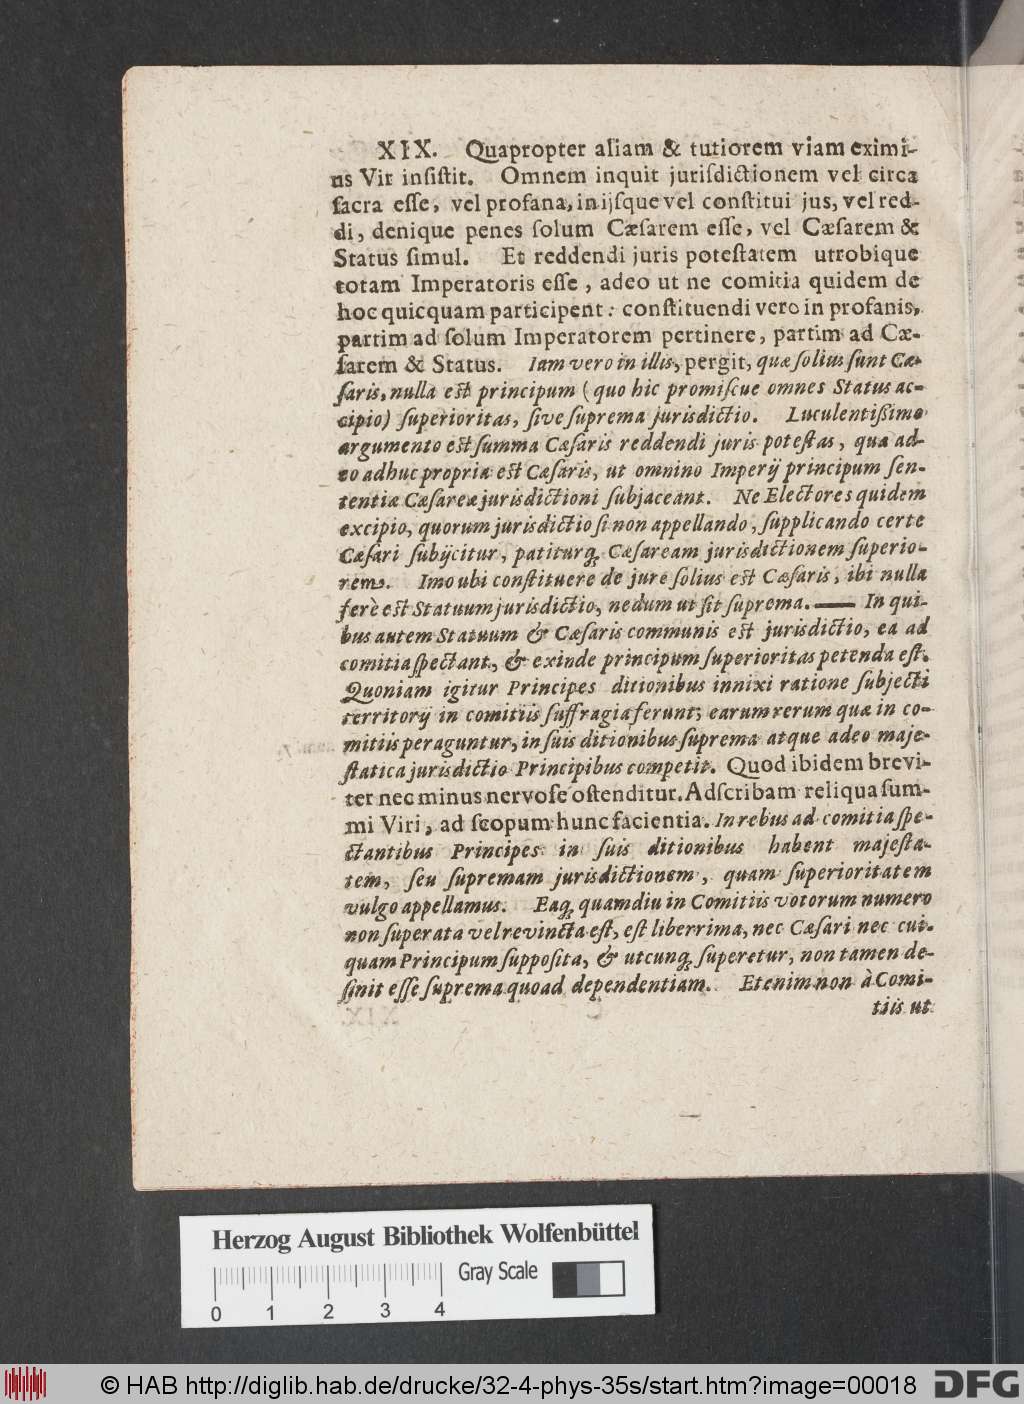 XIX. Quapropter aliam & tutiorem viam eximi-
us Vir insistit. Omnem inquit jurisdictionem vel circa
sacra esse, vel profana, in ijsque vel constitui jus, vel red-
di, denique penes solum Cæsarem esse, vel Cæsarem &
Status simul. Et reddendi juris potestatem utrobique
totam Imperatoris esse, adeo ut ne comitia quidem de
hoc quicquam participent: constituendi vero in profanis,
partim ad solum Imperatorem pertinere, partim ad Cæ-
sarem & Status. Iam vero in illis, pergit, quæ solius sunt Cæ-
saris, nulla est principum (quo hic promiscue omnes Status ac-
cipio) superioritas, sive suprema jurisdictio. Luculentißimo
argumento est summa Cæsaris reddendi juris potestas, qua ad-
eo adhuc propria est Cæsaris, ut omnino Imperij principum sen-
tentiæ Cæsareæ jurisdictioni subjaceant. Ne Electores quidem
excipio, quorum jurisdictio si non appellando, supplicando certe
Cæsari subijcitur, patiturq; Cæsaream jurisdictionem superio-
rem. Imo ubi constituere de jure solius est Cæsaris, ibi nulla
ferè est Statuum jurisdictio, nedum ut sit suprema. — In qui-
bus autem Statuum & Cæsaris communis est jurisdictio, ea ad
comitia spectant, & exinde principum superioritas petenda est.
Quoniam igitur Principes ditionibus innixi ratione subjecti
territorij in comitiis suffragia ferunt; earum rerum quæ in co-
mitiis peraguntur, in suis ditionibus suprema atque adeo maje-
statica jurisdictio Principibus competit. Quod ibidem brevi-
ter nec minus nervose ostenditur. Adscribam reliqua sum-
mi Viri, ad scopum hunc facientia. In rebus ad comitia spe-
ctantibus Principes in suis ditionibus habent majesta-
tem, seu supremam jurisdictionem, quam superioritatem
vulgo appellamus. Eaq; quamdiu in Comitiis votorum numero
non superata vel revincta est, est liberrima, nec Cæsari nec cui-
quam Principum supposita, & utcunq; superetur, non tamen de-
sinit esse suprema quoad dependentiam. Etenim non à Comi-
tiis ut
Herzog August Bibliothek Wolfenbüttel
Gray Scale
0 1 2 3 4
© HAB http://diglib.hab.de/drucke/32-4-phys-35s/start.htm?image=00018
DFG